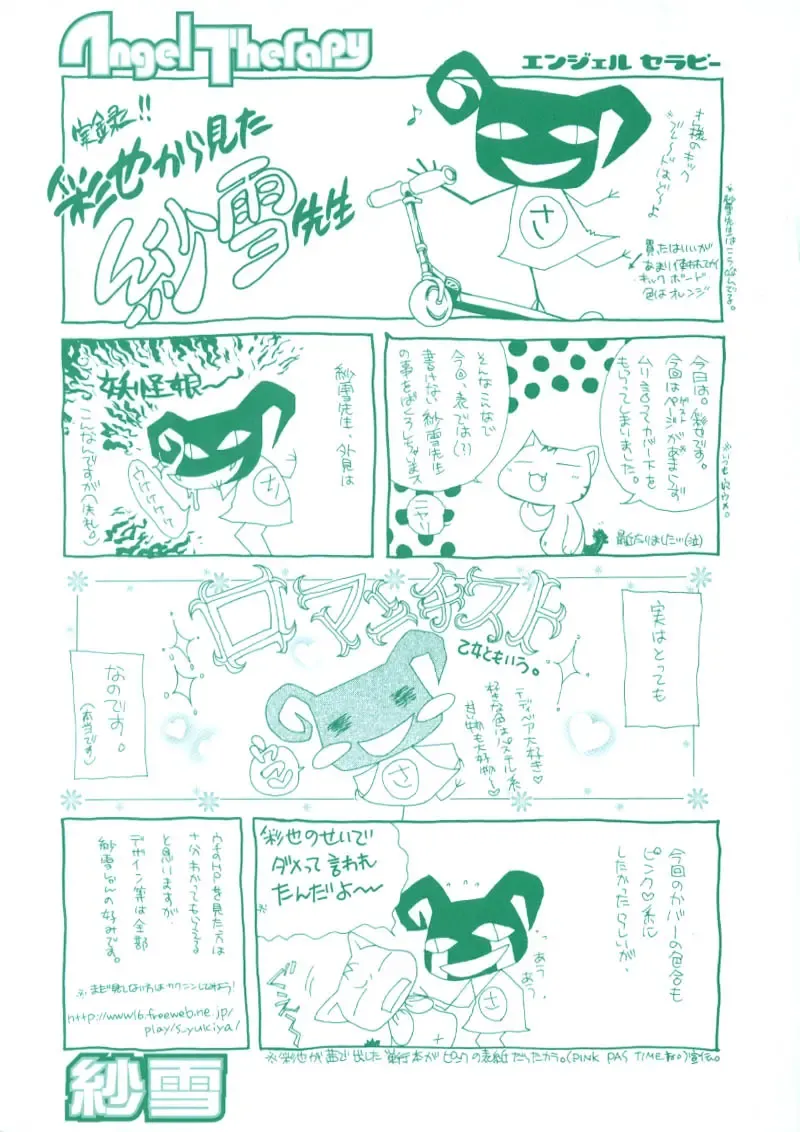 Angel Therapy
エンジェル セラピー
実録!!
彩也から見た
紗雪先生
さ
買ったはいいが
あまり使われてない
キックボード
色はオレンジ
今日は。彩也です。
今回はページがあまらず
ムリ言ってカバー下を
もらってしまいました。
そんなこんなで
今回、表では(?)
書けない紗雪先生
の事をばくろしちゃいまス
ニヤリ
紗雪先生、外見は
妖怪娘〜
ウケケケケ
さ
こんなんですが(失礼。)
実はとっても
ロマンチスト
乙女ともいう。
テディベア大好き♡
好きな色はパステル系
甘い物も大好物〜♡
さ
なのです。
(本当です)
今回のカバーの色合も
ピンク♡系に
したかったらしいが、
あう
あう
さ
彩也のせいで
ダメって言われ
たんだよ〜
※
ウチのHPを見た方は
十分わかってもらえてる
と思いますが、
デザイン等は全部
紗雪しゃんの好みです。
※まだ見てない方はカクニンしてみよう!
http://www16.freeweb.ne.jp/
play/s_yukiya/
※彩也が茜で出した単行本がピンクの表紙だったカラ。(PINK PAS TIME

紗雪